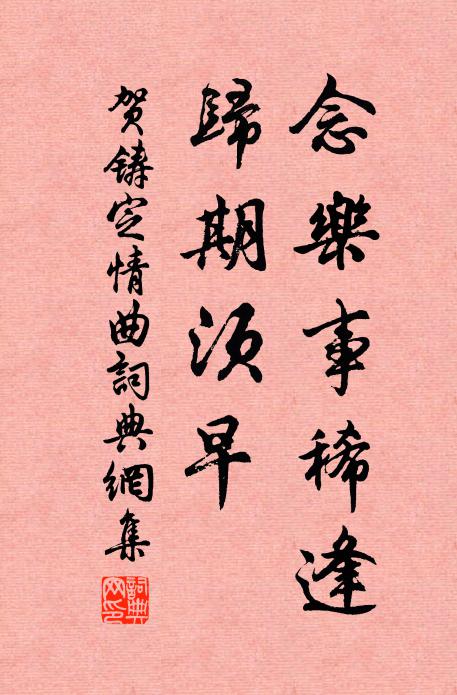 念樂事稀逢
歸期須早
贺鑄定情曲詞典網集
詞典网印